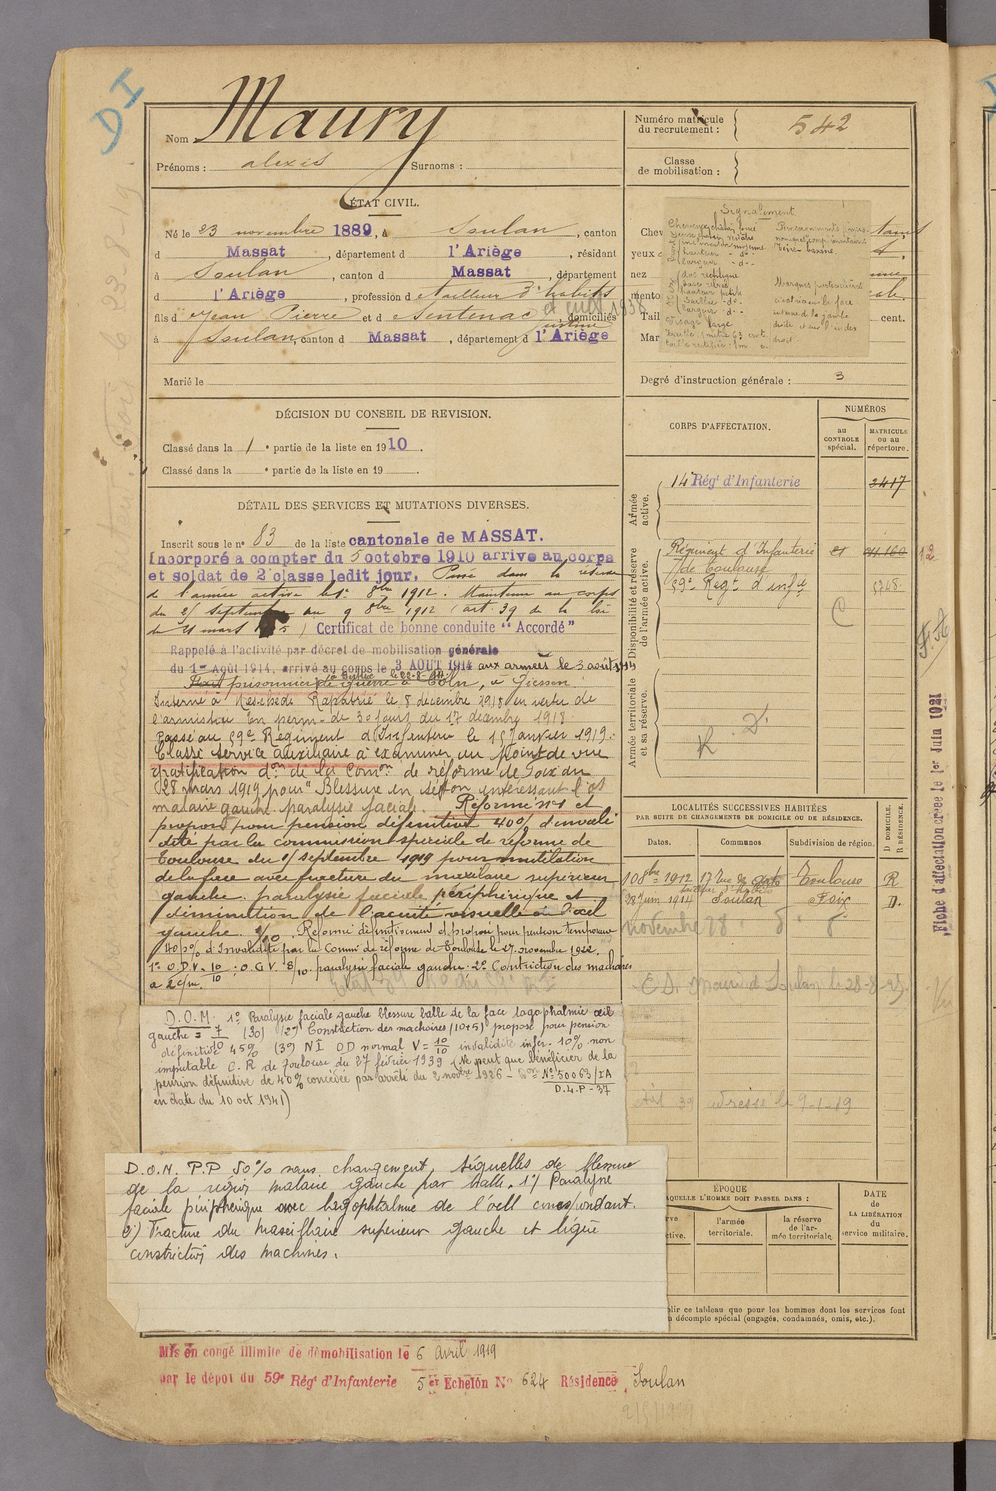 DI
Nom Maury
Prénoms : alexis Surnoms :
Numéro matricule du recrutement : 542
Classe de mobilisation :
ÉTAT CIVIL.
Né le 23 novembre 1889, à Soulan, canton
d Massat, département d l'Ariège, résidant
à Soulan, canton d Massat, département
d l'Ariège, profession d tailleur d'habits
fils d Jean Pierre et d Sentenac Justine, domiciliés
à Soulan, canton d Massat, département d l'Ariège
Marié le
Signalement
Degré d'instruction générale : 3
DÉCISION DU CONSEIL DE REVISION.
Classé dans la 1e partie de la liste en 1910.
Classé dans la e partie de la liste en 19 .
DÉTAIL DES SERVICES ET MUTATIONS DIVERSES.
Inscrit sous le no 83 de la liste cantonale de MASSAT.
Incorporé a compter du 5 octobre 1910 arrive au corps
et soldat de 2e classe ledit jour. Passé dans la réserve
de l'armée active le 1er 8bre 1912. Maintenu au corps
du 25 septembre au 9 8bre 1912 (art. 39 de la loi
du 21 mars 1905) Certificat de bonne conduite "Accordé"
Rappelé à l'activité par décret de mobilisation générale
du 1er Août 1914, arrivé au corps le 3 AOUT 1914 aux armées le 3 août 1914
prisonnier de guerre à Cöln, à Giessen.
Interné à Meschede Rapatrié le 8 décembre 1918 en vertu de
l'armistice En perm. de 30 jours du 17 décembre 1918
Passé au 59e Régiment d'Infanterie le 15 janvier 1919.
Classé service auxiliaire à examiner au point de vue
gratification don de la Comon de réforme de Foix du
28 mars 1919 pour "Blessure en séton intéressant l'os
malaire gauche. paralysie faciale. Réformé no 1 et
proposé pour pension définitive 40% d'invali
dité par la commission spéciale de réforme de
Toulouse du 1er septembre 1919 pour mutilation
de la face avec fracture du maxilaire supérieur
gauche. paralysie faciale périphérique et
diminution de l'acuité visuelle à l'oeil
gauche. Réformé définitivement et proposé pour pension temporaire
40 p% d'Invalidité par la Common de réforme de Toulouse le 27 novembre 1922.
1o O.D.V. = 10/10 : O.G.V. 8/10. paralysie faciale gauche. 2o Contriction des machoires
a 2 c/m.
D.O.M. 1o Paralysie faciale gauche blessure balle de la face lagophalmie oeil
gauche = 7/10 (30) (2o) Constriction des machoires (10+5) proposé pour pension
définitive 45% (3o) NI OD normal V = 10/10 invalidité infér. 10% non
imputable C. R de Toulouse du 27 février 1939 (Ne peut que bénéficier de la
pension définitive de 40% concédée par arrêté du 2 novbre 1926 - No 50063/IA
D.L.P - 37
en date du 10 oct 1941)
D.O.N. P.P 50% sans changement, séquelles de blessure
de la région malaire gauche par balle. 1o/ Paralysie
faciale périphérique avec lagophtalmie de l'oeil correspondant.
2o/ Fracture du maxillaire supérieur gauche et légère
constriction des machoires.
CORPS D'AFFECTATION.
NUMÉROS
au CONTROLE spécial.
MATRICULE ou au répertoire.
Armée active.
14e Régt d'Infanterie 2417
Disponibilité et réserve de l'armée active.
Régiment d'Infanterie
de Toulouse
59e Regt d'infie
C
Armée territoriale et sa réserve.
LOCALITÉS SUCCESSIVES HABITÉES
PAR SUITE DE CHANGEMENTS DE DOMICILE OU DE RÉSIDENCE.
Dates. Communes. Subdivision de région. D DOMICILE. R RÉSIDENCE.
10 8bre 1912 17 rue des Arts Toulouse R
28 Juin 1914 Soulan Foix D.
novembre 28
adresse le 9-1-19
ÉPOQUE
A LAQUELLE L'HOMME DOIT PASSER DANS :
l'armée territoriale.
la réserve de l'armée territoriale.
DATE de LA LIBÉRATION du service militaire.
blir ce tableau que pour les hommes dont les services font
décompte spécial (engagés, condamnés, omis, etc.).
Fiche d'affectation créée le 1er Juin 1921
Mis en congé illimité de démobilisation le 6 avril 1919
par le dépôt du 59e Régt d'Infanterie 5er Echelon No 624 Résidence Soulan